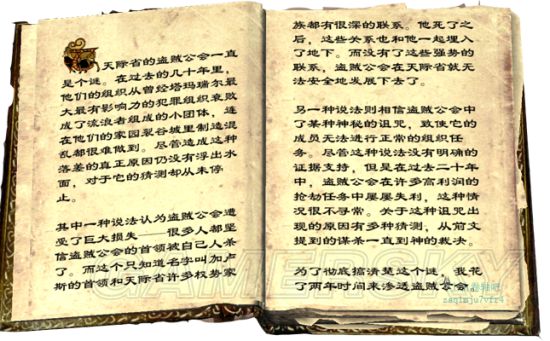 天际省的盗贼公会一直
是个谜。在过去的几十年里，
他们的组织从曾经塔玛瑞尔最
大最有影响力的犯罪组织衰败
成了流浪者组成的小团体，连
在他们的家园裂谷城里制造混
乱都很难做到。尽管造成这种
落差的真正原因仍没有浮出水
面，对于它的猜测却从未停
止。
其中一种说法认为盗贼公会遭
受了巨大损失——很多人都坚
信盗贼公会的首领被自己人杀
了。而这个只知道名字叫加卢
斯的首领和天际省许多权势家
族都有很深的联系。他死了之
后，这些关系也和他一起埋入
了地下。而没有了这些强势的
联系，盗贼公会在天际省就无
法安全地发展下去了。
另一种说法则相信盗贼公会中
了某种神秘的诅咒，致使它的
成员无法进行正常的组织任
务。尽管这种说法没有明确的
证据支持，但是在过去二十年
中，盗贼公会在许多高利润的
抢劫任务中屡屡失利，这种情
况很不寻常。关于这种诅咒出
现的原因有多种猜测，从前文
提到的谋杀一直到神的裁决。
为了彻底搞清楚这个谜，我花
了两年时间来渗透盗贼公会
GAMERSKY
zaq1mju7vfr4